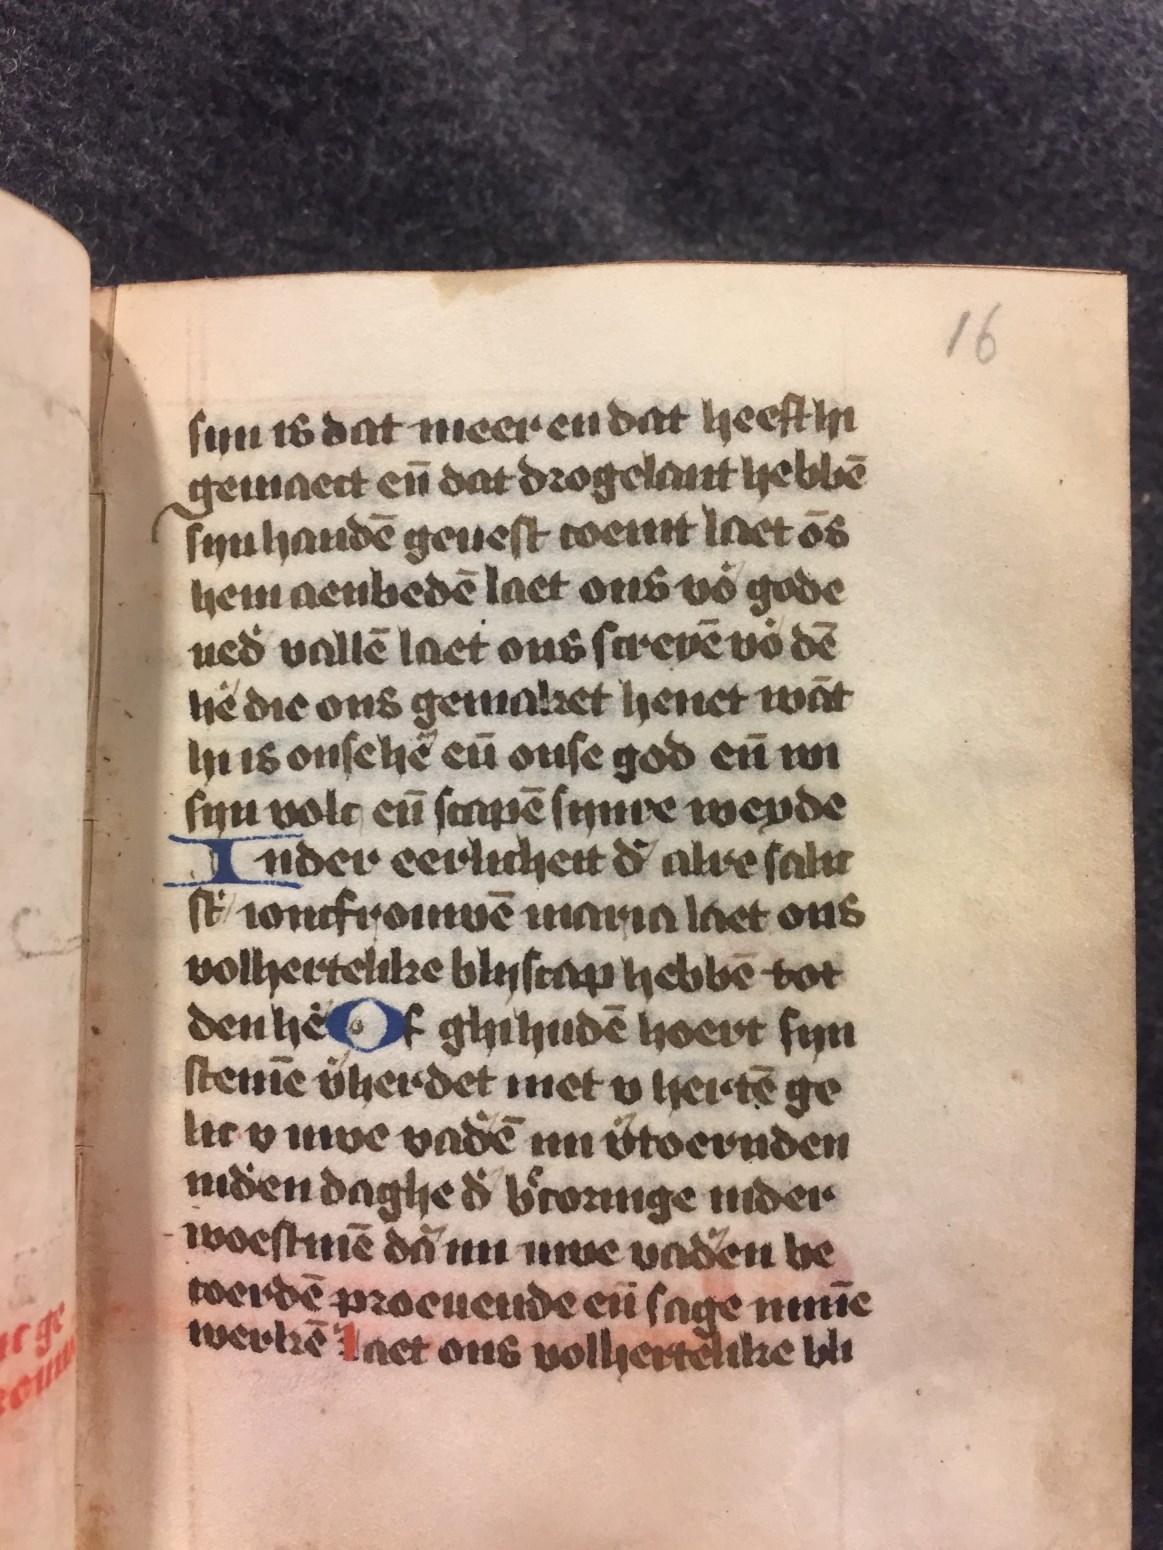 16
sijn is dat meer en dat heeft hi
gemaect eñ dat drogelant hebbē
sijn handē geuest coemt laet ōs
hem aenbedē laet ons vo' gode
ned' vallē laet ons screyē vo' dē
hē' die ons gemaket heuet wāt
hi is onse hē' eñ onse god eñ wi
sijn volc eñ scapē sijnre weyde
Inder eerlicheit d' alre salic
st' ioncfrouwē maria laet ons
volhertelike blijscap hebbē tot
den hē' Of ghi hudē hoert sijn
stem̄e v'herdet niet v hertē ge
lic v uwe vad'ē mi v'toernden
inden daghe d' b'coringe inder
woestinē da' mi uwe vad'en be
coerdē proeuende eñ sage mine
werkē Laet ons volhertelike bli